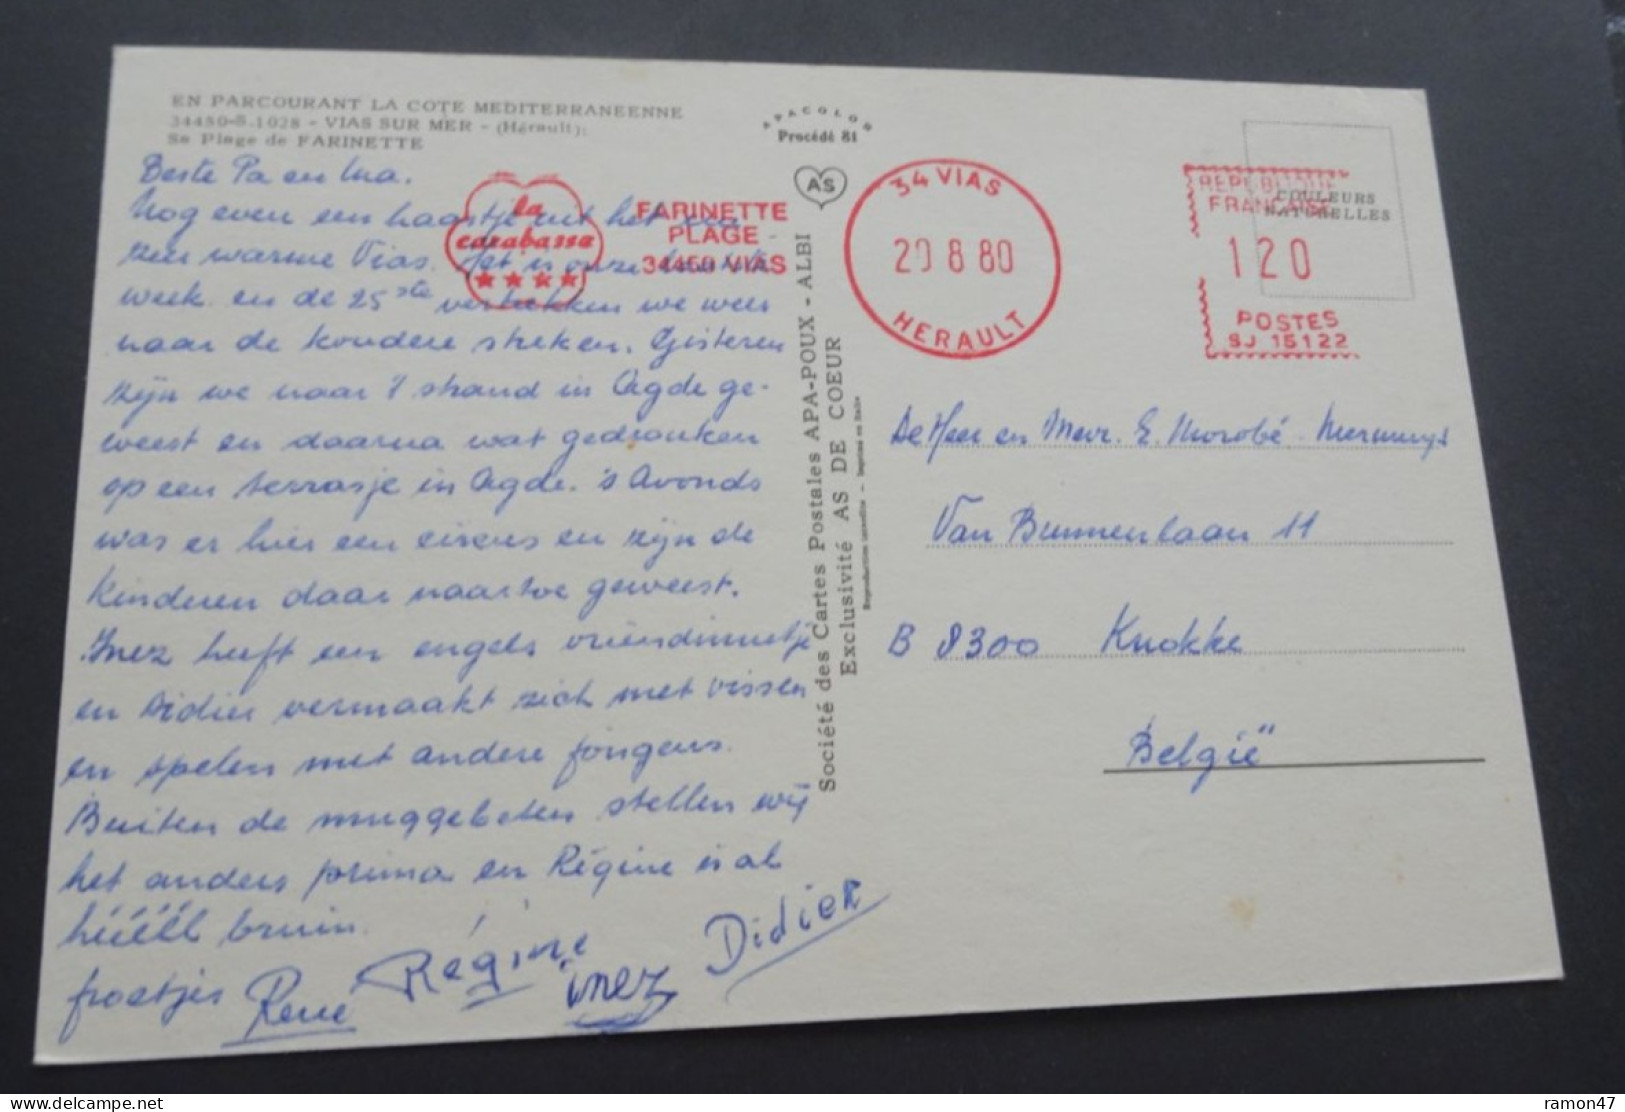 EN PARCOURANT LA COTE MEDITERRANEENNE
34450-S.1028 - VIAS SUR MER - (Hérault):
Sa Plage de FARINETTE
APACOLOR
Procédé 81
AS
COULEURS
NATURELLES
la
carabassa
FARINETTE
PLAGE
34450 VIAS
34 VIAS
20 8 80
HERAULT
REPUBLIQUE
FRANCAISE
120
POSTES
SJ 15122
Beste Pa en Ma.
Nog even een haastje uit het
zeer warme Vias. Het is onze laatste
week en de 25ste vertrekken we weer
naar de koudere streken. Gisteren
zijn we naar 't strand in Agde ge-
weest en daarna wat gedronken
op een terrasje in Agde. 's Avonds
was er hier een circus en zijn de
kinderen daar naartoe geweest.
Inez heeft een engels vriendinnetje
en Didier vermaakt zich met vissen
en spelen met andere jongens.
Buiten de muggebeten stellen wij
het anders prima en Régine is al
héééél bruin.
froetjes René Régine inez Didier
Société des Cartes Postales APA-POUX - ALBI
Exclusivité AS DE COEUR
Reproduction interdite - Imprimé en Italie
De Heer en Mevr. E. Morobé -
Van Bunnenlaan 11
B 8300 Knokke
België
ramon47